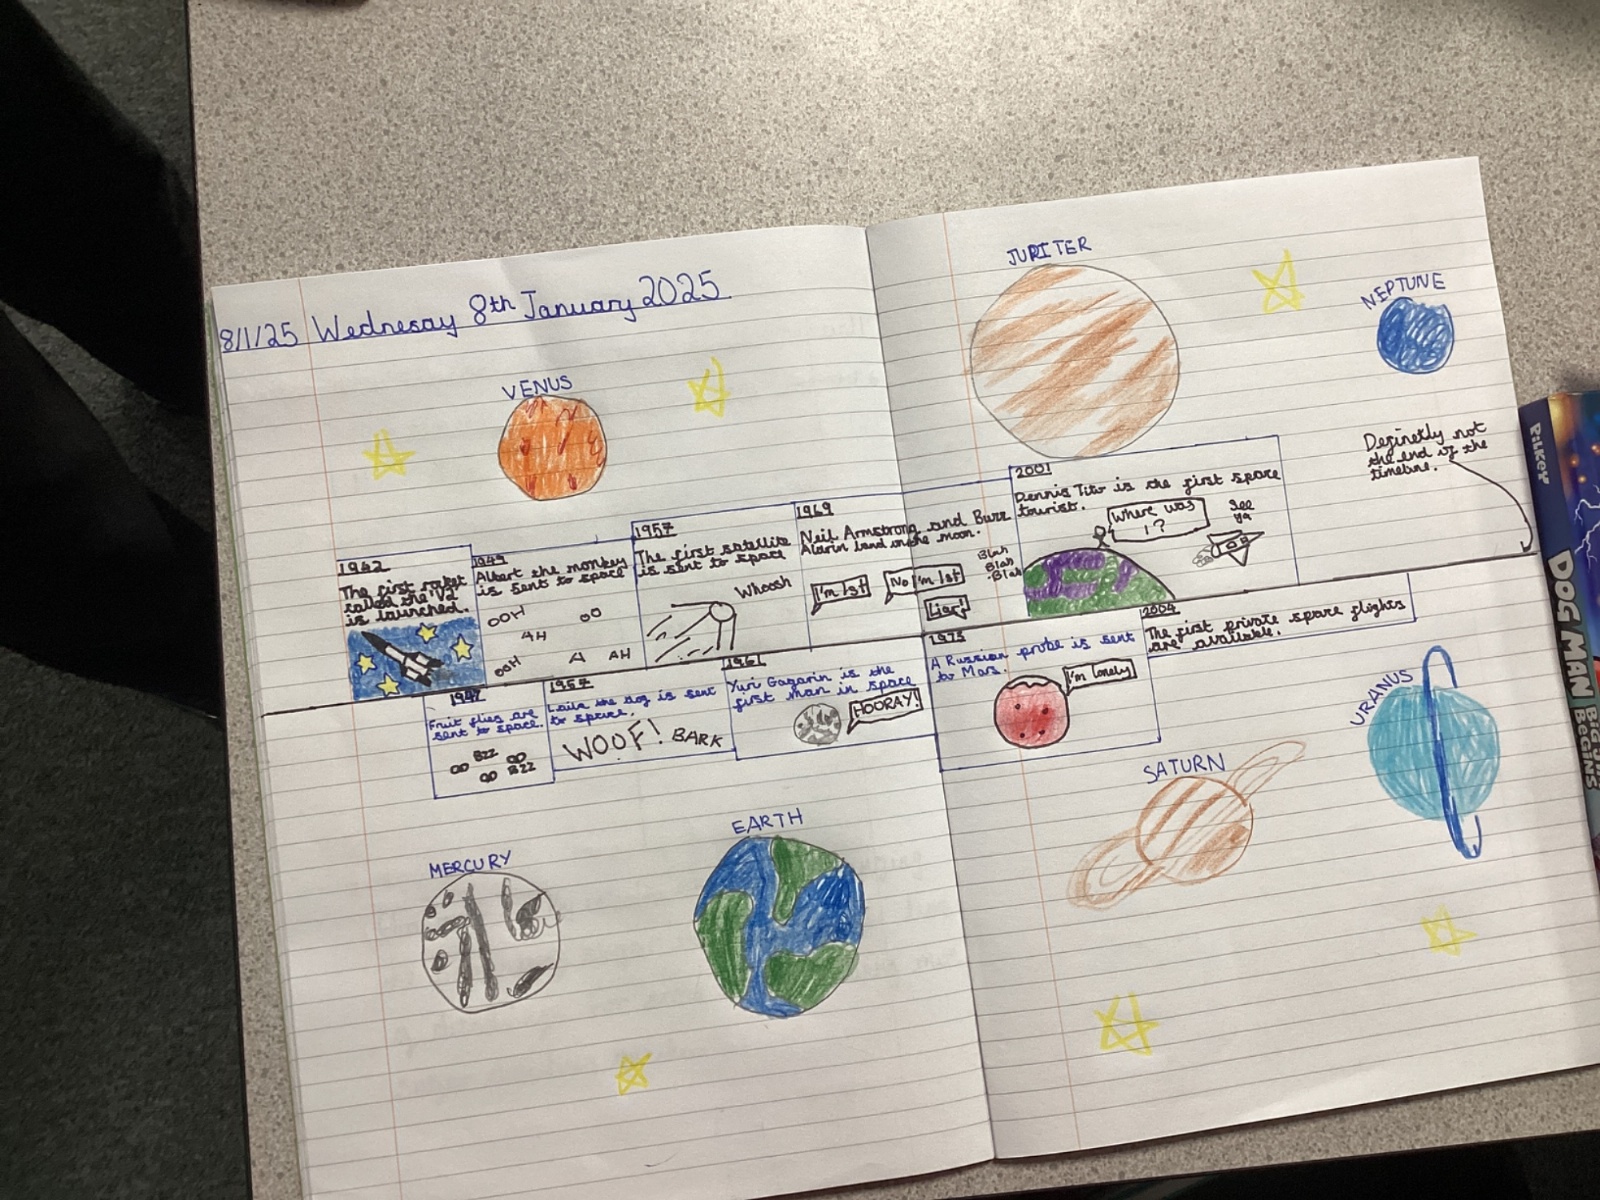 8/1/25 Wednesay 8th January 2025
VENUS
JUPITER
NEPTUNE
1942
The first rocket
called the "V2"
is launched.
1947
Fruit flies are
sent to space.
BZZ
BZZ
1949
Albert the monkey
is sent to space
OOH
OO
AH
OOH
A
AH
1957
The first satellite
is sent to space
Whoosh
1957
Laika the dog is sent
to space.
WOOF! BARK
1961
Yuri Gagarin is the
first man in space
HOORAY!
1969
Neil Armstrong and Buzz
Aldrin land on the moon.
I'm 1st
No I'm 1st
Liar!
Blah
Blah
Blah
A Russian probe is sent
to Mars.
I'm lonely
2001
Dennis Tito is the first space
tourist.
Where was
I?
See
ya
2004
The first private space flights
are available.
Definetly not
the end of the
timeline.
MERCURY
EARTH
SATURN
URANUS
Pilkey
DOG MAN
BIG JIM
BEGINS